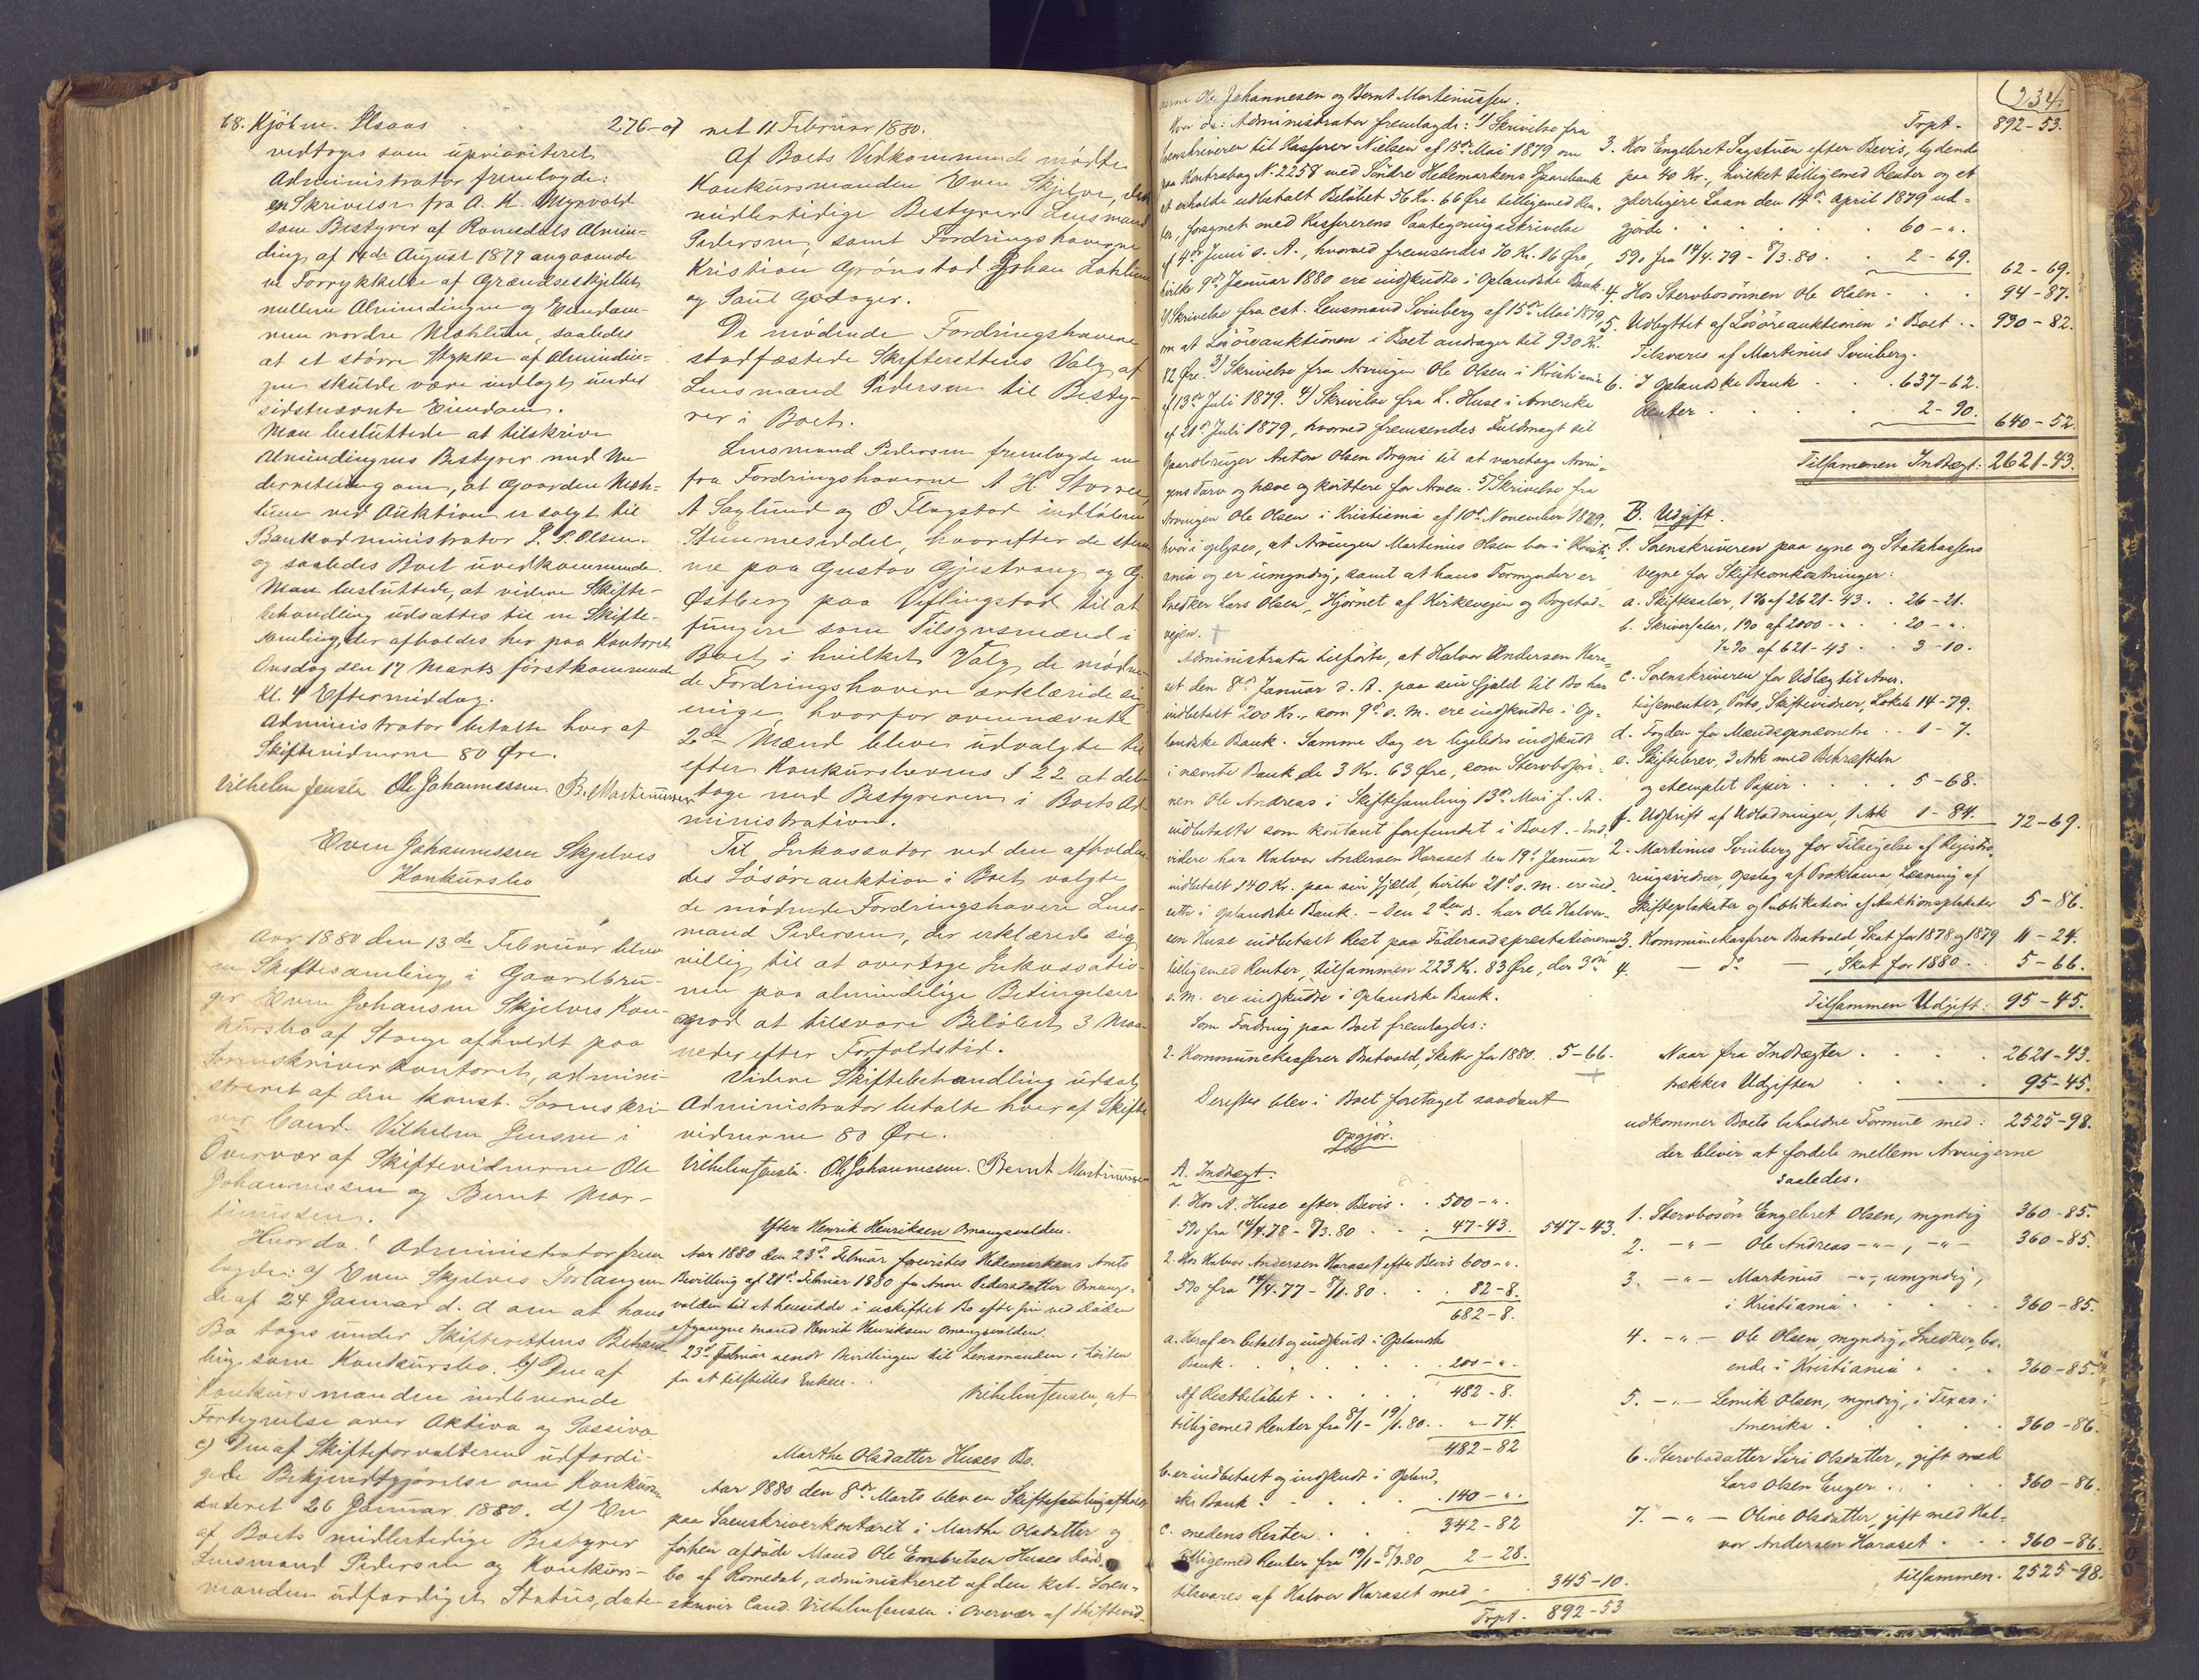 68. Kjöbm. Ilsaas . . 276-07
vedtoges som uprioriteret.
Administrator fremlagde:
en Skrivelse fra A. K. Myrvold
som Bestyrer af Romedals Almin-
ding af 14de August 1879 angaaende
en Forrykkelse af Grændseskjellet
mellem Almindingen og Eiendom-
men nordre Mæhlum, saaledes
at et större Stykke af Almindin-
gen skulde være indlagt under
sidstnævnte Eiendom.
Man besluttede at tilskrive
Almindingens Bestyrer med Un-
derretning om, at Gaarden Mæh-
lum ved Auktion er solgt til
Bankadministrator P. P. Olsen.
og saaledes Boet uvedkommende.
Man besluttede, at videre Skifte-
behandling udsættes til en Skifte-
samling, der afholdes her paa Kontoret
Onsdag den 17 Marts förstkommende
Kl. 4 Eftermiddag.
Administrator betalte hver af
Skiftevidnerne 80 Øre.
Vilhelm Jensen Ole Johannessen. B. Martinussen
Even Johannessen Skjelves
Konkursbo
Aar 1880 den 13de Februar blev
en Skiftesamling i Gaardbru-
ger Even Johansen Skjelves Kon-
kursbo af Stange afholdt paa
Sorenskriverkontoret, admini-
streret af den konst. Sorenskri-
ver Cand. Vilhelm Jensen i
Overvær af Skiftevidnerne Ole
Johannessen og Bernt Mar-
tinussen.
Hvor da! Administrator frem
lagde: a) Even Skjelves Forlangen
de af 24 Januar d. A om at hans
Bo toges under Skifterettens Behand-
ling som Konkursbo. b) Den af
Konkursmanden indleverede
Fortegnelse over Aktiva og Passiva
c) Den af Skifteforvalteren udfærdi-
gede Bekjendtgjørelse om Konkursen
dateret 26 Januar 1880. d) En
af Boets midlertidige Bestyrer
Lensmand Pedersen og Konkurs-
manden udfærdiget Status, date-
ret 11 Februar 1880.
Af Boets Vedkommende mødte
Konkursmanden Even Skjelve, den
midlertidige Bestyrer Lensmand
Pedersen, samt Fordringshaverne
Kristian Grönstad Johan Lahlum
og Paul Godager.
De mødende Fordringshavere
stadfæstede Skifterettens Valg af
Lensmand Pedersen til Besty-
rer i Boet.
Lensmand Pedersen fremlagde en
fra Fordringshaverne A H Storree,
A Saglund og O Flagstad indløben
Stemmeseddel, hvorefter de stem
me paa Gustav Gjestvang og G.
Østberg paa Veflingstad til at
fungere som Tilsynsmænd i
Boet, i hvilket Valg de møden
de Fordringshavere erklærede sig
enige, hvorfor ovennævnte
2de Mænd bleve udvalgte til
efter Konkurslovens § 22 at del-
tage med Bestyreren i Boets Ad
ministration.
Til Inkassator ved den afholden-
des Løsöreauktion i Boet valgte
de mødende Fordringshavere Lens-
mand Pedersen, der erklærede sig
villig til at overtage Inkassatio-
nen paa almindelige Betingelser
mod at tilsvare Beløbet 3 Maa-
neder efter Forfaldstid.
Videre Skiftebehandling udsat
Administrator betalte hver af Skifte
vidnerne 80 Øre.
Vilhelm Jensen. Ole Johannessen. Bernt Martinussen
Efter Henrik Henriksen Omangsvolden.
Aar 1880 den 23de Februar forevistes Hedemarkens Amts
Bevilling af 21de Februar 1880 for Anne Pedersdatter Omangs-
volden til at hensidde i uskiftet Bo efter sin ved Døden
afgangne Mand Henrik Henriksen Omangsvolden.
23de Februar sendt Bevillingen til Lensmanden i Löiten
for at tilstilles Enken.
Vilhelm Jensen, cst
Marthe Olsdatter Huses Bo.
Aar 1880 den 8de Marts blev en Skiftesamling afholdt
paa Sorenskriverkontoret i Marthe Olsdatter og
forhen afdöde Mand Ole Embretsen Huses Döds-
bo af Romedal, administreret af den kst. Soren-
skriver Cand. Vilhelm Jensen i Overvær af Skiftevid-
nerne Ole Johannesen og Bernt Martinussen.
Hvor da: Administrator fremlagde: 1) Skrivelse fra
Sorenskriveren til Kasserer Nielsen af 15de Mai 1879 om
paa Kontrabog No 2258 med Söndre Hedemarkens Sparebank
at erholde udbetalt Belöbet 56 Kr. 66 Øre tilligemed Ren-
ter, forsynet med Kassererens Paategningsskrivelse
af 4de Juni s. A., hvorved fremsendes 70 Kr. 16 Øre,
hvilke 9de Januar 1880 ere indskudte i Oplandske Bank.
2) Skrivelse fra cst. Lensmand Svinberg af 15de Mai 1879,
om at Lösöreauktionen i Boet andrager til 930 Kr.
82 Øre. 3) Skrivelse fra Arvingen Ole Olsen i Kristiania
af 13de Juli 1879. 4) Skrivelse fra L. Huse i Amerika
af 21de Juli 1879, hvorved fremsendes Fuldmagt til
Gaardbruger Anton Olsen Brynie til at varetage Arvin-
gens Tarv og hæve og kvittere for Arven. 5) Skrivelse fra
Arvingen Ole Olsen i Kristiania af 10de November 1879,
hvori oplyses, at Arvingen Martinius Olsen bor i Kristi-
ania og er umyndig, samt at hans Formynder er
Snedker Lars Olsen, Hjörnet af Kirkevejen og Bogstad-
vejen. +
Administrator tilførte, at Halvor Andersen Hara-
set den 8de Januar d. A. paa sin Gjæld til Bo har
indbetalt 200 Kr., som 9de s. M. ere indskudte i Op-
landske Bank. Samme Dag er ligeledes indskudt
i nævnte Bank de 3 Kr. 63 Øre, som Stervbosøn-
nen Ole Andreas i Skiftesamling 13de Mai f. A.
indbetalte som kontant forefundet i Boet. - End-
videre har Halvor Andersen Haraset den 19de Januar
indbetalt 140 Kr. paa sin Gjæld, hvilke 21de s. M. ere ind-
satte i Oplandske Bank. - Den 2den ds. har Ole Halvor-
sen Huse indbetalt Rest paa Föderaadsprestationerne
tilligemed Renter, tilsammen 223 Kr. 83 Øre, der 3die
s. M. ere indskudte i Oplandske Bank.
Som Fordring paa Boet fremlagdes:
2. Kommunekasserer Bratvold, Skatter for 1880. 5-66.
+
Derefter blev i Boet foretaget saadant
Opgjör.
A. Indtægt.
1. Hos A. Huse efter Bevis . . 500-".
5% fra 14/4.78 - 8/3.80 . . . 47-43. 547-43.
2. Hos Halvor Andersen Haraset efter Bevis 600-".
5% fra 14/4.77 - 8/1.80 . . . 82-8.
682-8.
a. Heraf er betalt og indskudt i Oplandske
Bank . . . . . . 200-".
Af Restbelöbet . . . . . 482-8.
tilligemed Renter fra 8/1 - 19/1.80 . . "-74.
482-82
b. er indbetalt og indskudt i Opland-
ske Bank . . . . . . 140-".
342-82
c. medens Resten . . .
tilligemed Renter fra 19/1 - 8/3.80 2-28.
tilsvares af Halvor Haraset med . . 345-10.
Trpt. 892-53
(234.
Trpt. 892-53.
3. Hos Engebret Sagstuen efter Bevis, lydende
paa 40 Kr., hvilket tilligemed Renter og et
yderligere Laan den 14de April 1879 ud-
gjorde . . . . . . 60-".
5% fra 14/4.79 - 8/3.80 . . 2-69. 62-69.
4. Hos Stervbosönnen Ole Olsen . . . 94-87.
5. Udbyttet af Lösöreauktionen i Boet . . 930-82.
Tilsvares af Martinius Svinberg.
6. I Oplandske Bank . . . 637-62.
Renter . . . . . . 2-90. 640-52.
Tilsammen Indtægt: 2621-43.
B. Udgift.
1. Sorenskriveren paa egne og Statskassens
Vegne for Skifteomkostninger:
a. Skiftesalær, 1% af 2621-43 . . 26-21.
b. Skriversalær, 1% af 2000-" . . 20-".
½% af 621-43 . . 3-10.
c. Sorenskriveren for Udlæg til Aver-
tissementer, Porto, Skiftevidner, Lokale 14-79.
d. Fogden for Mændsopnævnelse . . 1-7.
e. Skiftebrev, 3 Ark med Bekræftelse
og stemplet Papir . . . . 5-68.
f. Udskrift af Udlodningen, 1 Ark 1-84. 72-69.
2. Martinius Svinberg for Tilsigelse af Registre-
ringsvidner, Opslag af Proklama, Læsning af
Skifteplakater og Publikation af Auktionsplakater 5-86.
3. Kommunekasserer Bratvold, Skat for 1878 og 1879 11-24.
4. - do - , Skat for 1880 . . 5-66.
Tilsammen Udgift: 95-45.
Naar fra Indtægter . . . . 2621-43.
trækkes Udgiften . . . . 95-45.
udkommer Boets beholdne Formue med: 2525-98.
der bliver at fordele mellem Arvingerne
saaledes.
1. Stervbosön Engebret Olsen, myndig 360-85.
2. -"- Ole Andreas -"-, -"- 360-85.
3. -"- Martinius -"-, umyndig,
i Kristiania . . . . 360-85.
4. -"- Ole Olsen, myndig, Snedker, bo-
ende i Kristiania . . . 360-85.
5. -"- Lemik Olsen, myndig, i Texas i
Amerika . . . . . 360-86.
6. Stervbodatter Siri Olsdatter, gift med
Lars Olsen Enger . . . . 360-86.
7. -"- Oline Olsdatter, gift med Hal-
vor Andersen Haraset . . . 360-86.
tilsammen. 2525-98.